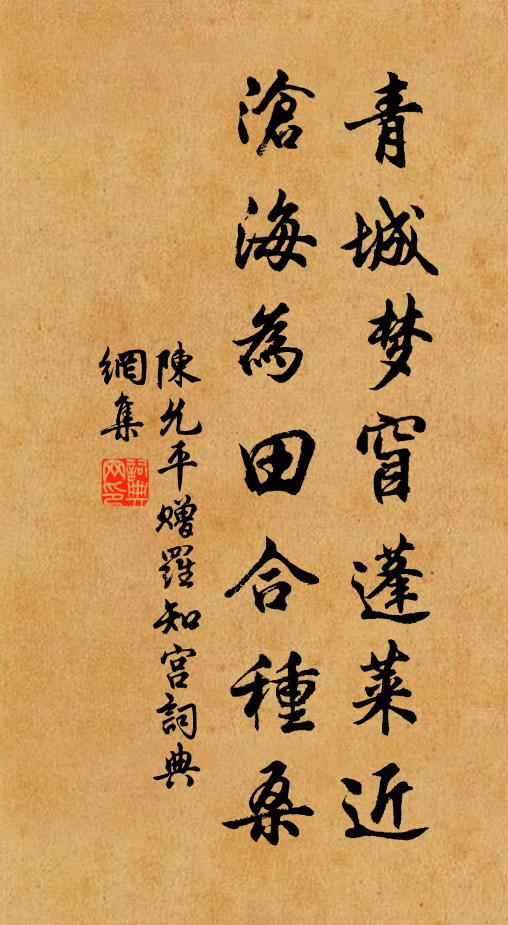 青城梦窅蓬莱近
滄海為田合種桑
陳允平贈羅知宫詞典
網集
詞典
网印